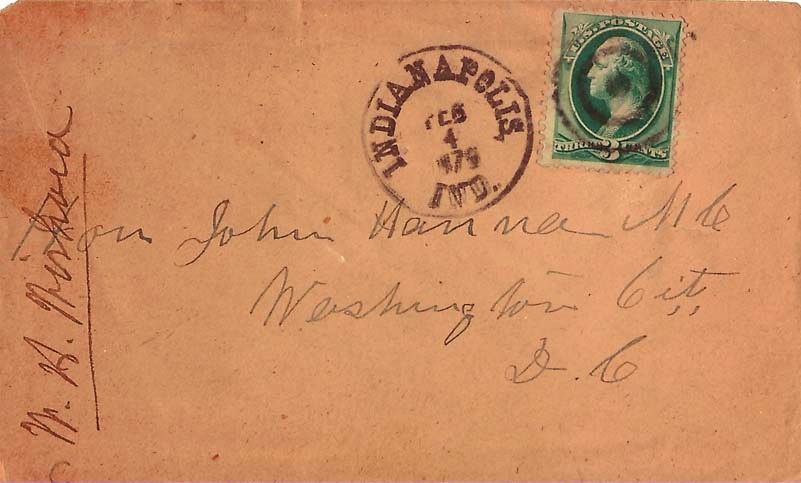 INDIANAPOLIS,
FEB
4
1879
IND.
U.S. POSTAGE
THREE 3 CENTS
Hon John Hanna M C
Washington City
D. C
W. H.